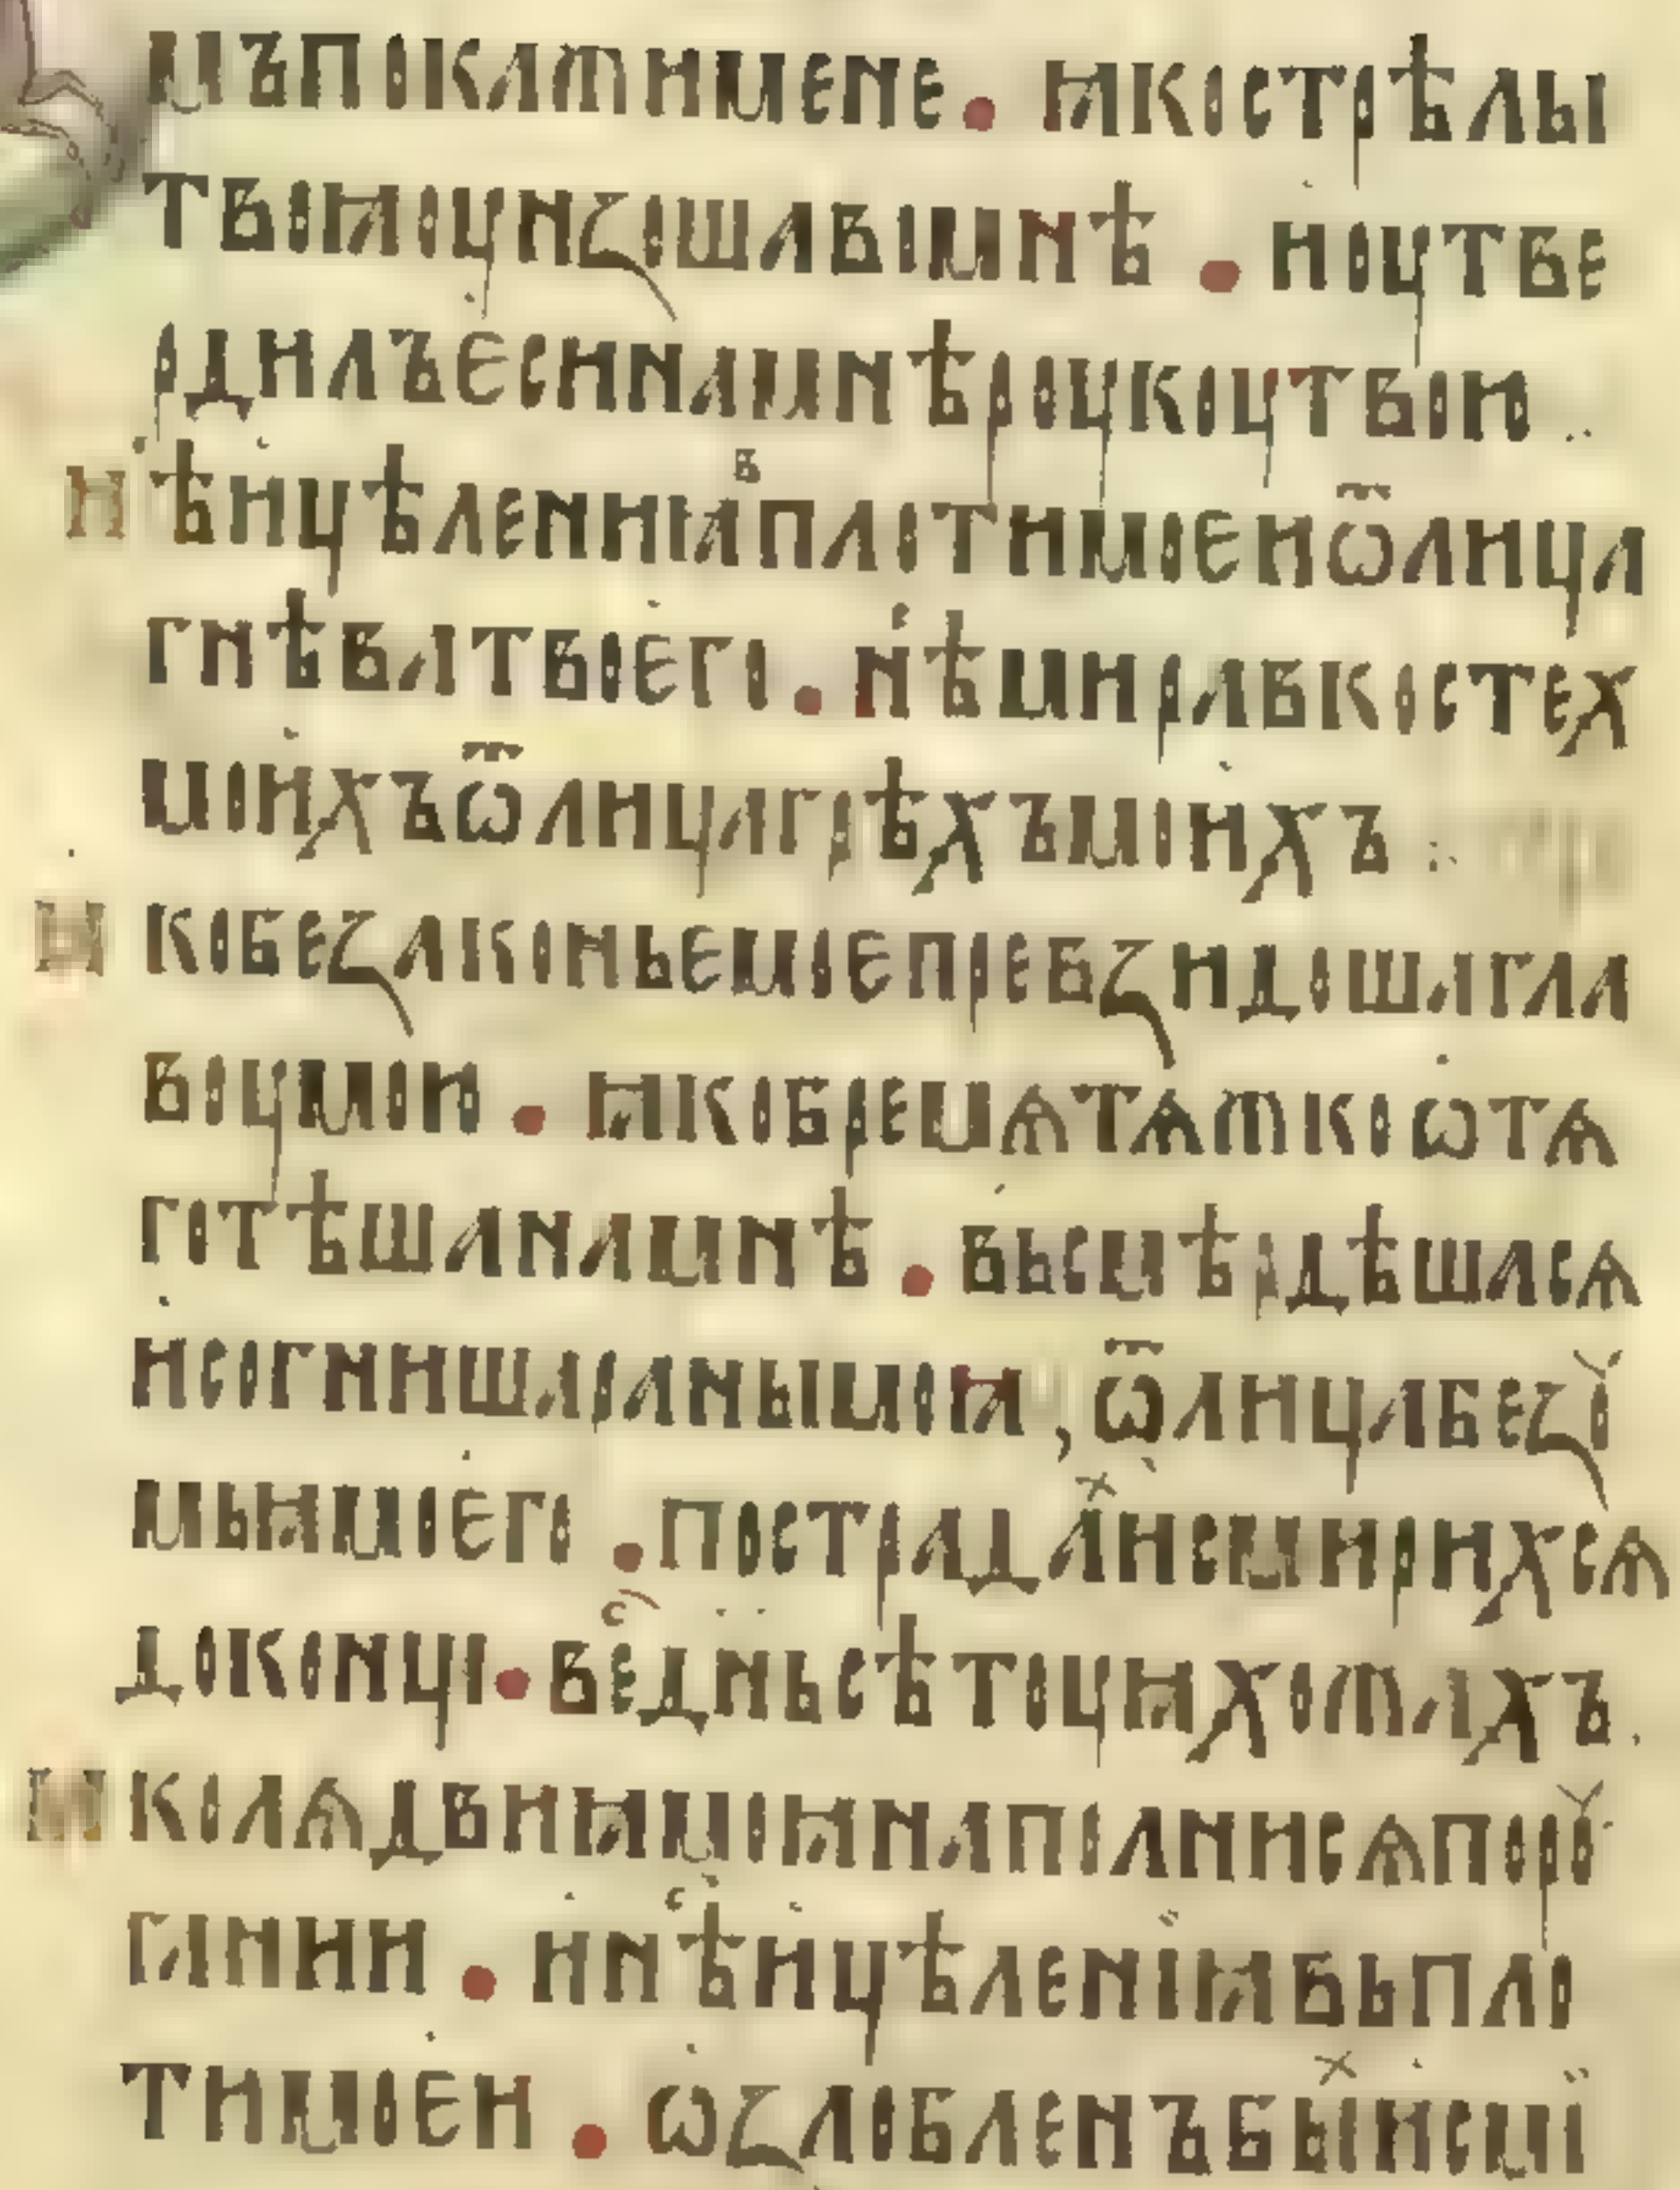 мъпокажимене. ꙗкострѣлы
твоꙗоунзошавомнѣ. иоутве
рдилъєсинамнѣроукоутвою
нѣицѣлениꙗвплотимоєиѿлица
гнѣватвоєго. нѣмиравкостех
моихъѿлицагрѣхъмоихъ:
ꙗкобеззаконьємоєпревзидошагла
воумою. ꙗкобремѧтѧжкоѡтѧ
готѣшанамнѣ. въсмѣрдѣшасѧ
исогнишаранымоꙗ, ѿлицабезꙋ
мьꙗмоєго. пострадахисмирихсѧ
доконца. весдньсѣтоуꙗхожахъ.
ꙗколѧдвиꙗмоꙗнаполнисѧпорꙋ
гании. инѣсицѣленіꙗвъпло
тимоєи. ѡзлобленъбыхисмі